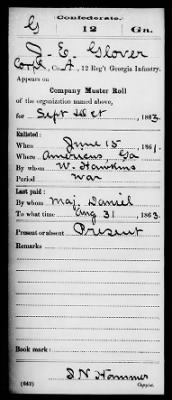 Confederate.
G 12 Ga.
J. E. Glover
Corpl, Co. A, 12 Reg't Georgia Infantry.
Appears on
Company Muster Roll
of the organization named above,
for Sept & Oct, 1863.
Enlisted:
When June 15, 1861.
Where Americus Ga
By whom W. Hawkins
Period War
Last paid:
By whom Maj. Daniel
To what time Aug 31, 1863.
Present or absent Present
Remarks:
Book mark:
Copyist.